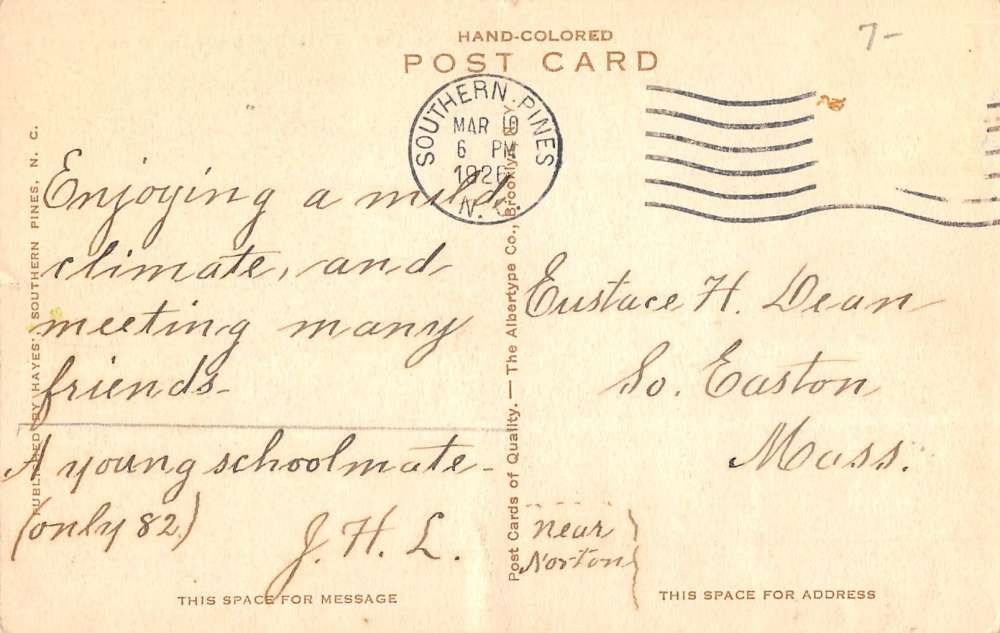 HAND-COLORED
POST CARD
7-
SOUTHERN PINES
MAR 10
6 PM
1926
N. C.
PUBLISHED BY HAYES' SOUTHERN PINES, N. C.
Enjoying a mild
climate, and
meeting many
friends-
A young schoolmate-
(only 82)
J. H. L.
Post Cards of Quality. — The Albertype Co., Brooklyn, N.Y.
Eustace H. Dean
So. Easton
Mass.
near
Norton
THIS SPACE FOR MESSAGE
THIS SPACE FOR ADDRESS